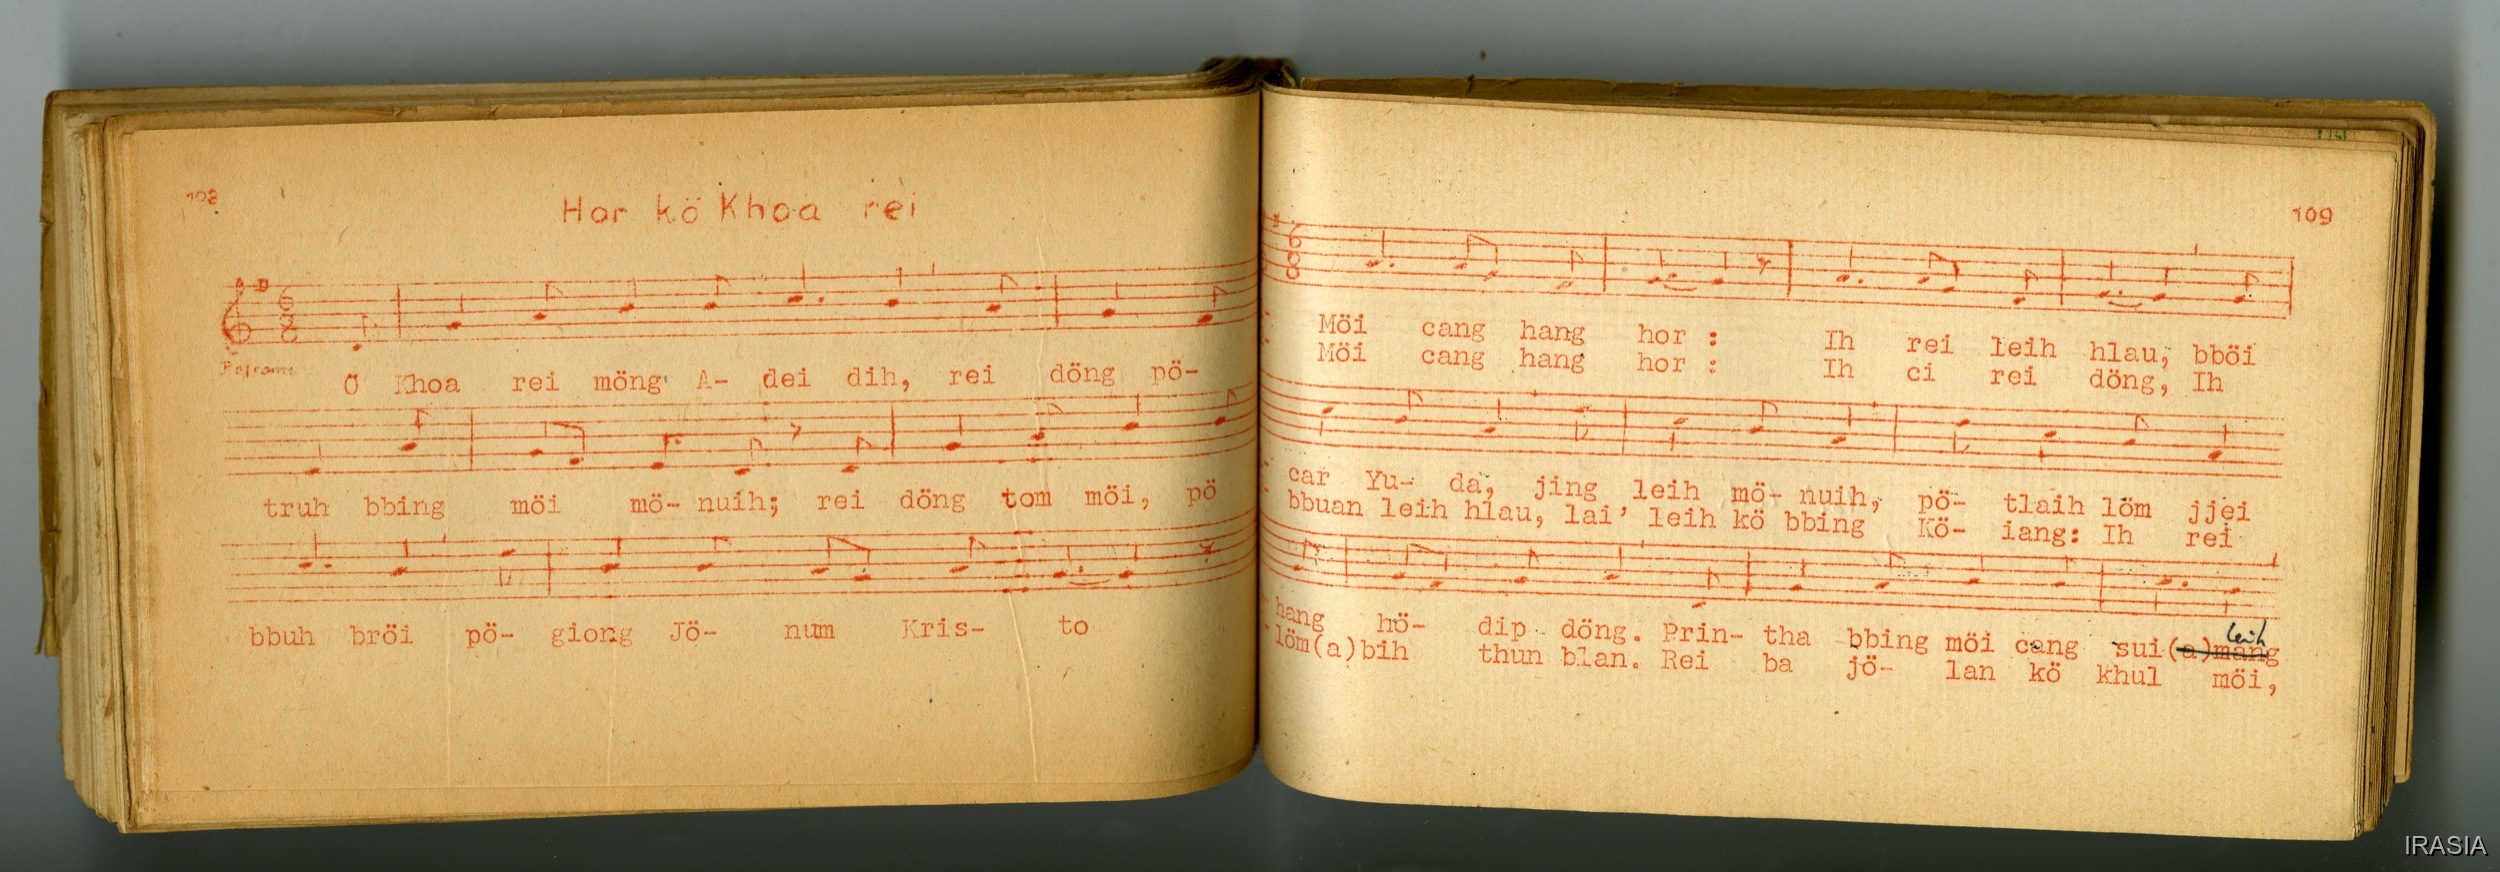 108
Hor kö Khoa rei
Ö Khoa rei möng A- dei dih, rei döng pö-
truh bbing möi mö- nuih; rei döng tom möi, pö
bbuh bröi pö- giong Jö- num Kris- to
109
Möi cang hang hor : Ih rei leih hlau, bböi
Möi cang hang hor : Ih ci rei döng, Ih
car Yu- da, jing leih mö- nuih, pö- tlaih löm jjei
bbuan leih hlau, lai' leih kö bbing Kö- iang: Ih rei
leih
hang hö- dip döng. Prin- tha bbing möi cang sui(a)mang
löm(a)bih thun blan. Rei ba jö- lan kö khul möi,
IRASIA